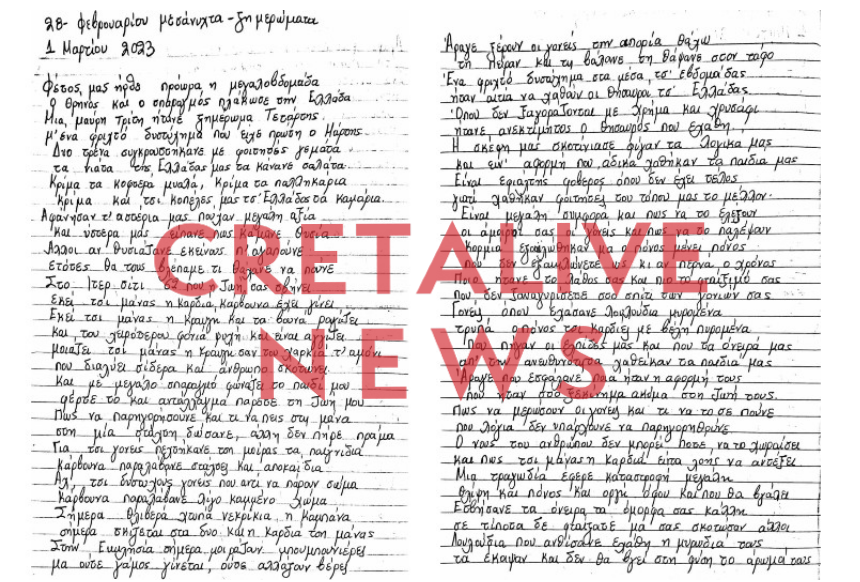 28- φεβρουαρίου μεσάνυχτα - ξημερώματα
1 Μαρτίου 2023
Φέτος, μας ήρθε πρόωρα, η μεγαλοβδομάδα
ο θρήνος και ο σπαραγμός πλάκωσε την Ελλάδα
Μια, μαύρη Τρίτη ήτανε ξημέρωμα Τετάρτης,
μ'ένα φριχτό δυστύχημα που είχε πρώτη ο Μάρτης
Δυο τρένα συγκρουστήκανε με φοιτητές γεμάτα
τα νιάτα της Ελλάδας μας τα κάνανε σαλάτα.
Κρίμα τα κοφτερά μυαλά, κρίμα τα παλληκάρια
κρίμα και τσι κοπέλες μας τσ' Ελλάδας τα καμάρια.
Αφανήσαν τ' αστέρια μας που'χαν μεγάλη αξία
και ύστερα μας είπανε, πως κάμανε θυσία
Άλλοι ας θυσιάζανε εκείνους π'αγαπούνε
ετότες θα τους βλέπαμε τι θάχανε να πούνε
εκεί τσι μάνας η καρδιά, κάρβουνα έχει γίνει
Εκεί τσι μάνας η κραυγή και τα βουνά ραγίζει
μοιάζει τσι μάνας η κραυγή σαν του χαρκιά τ' αμόνι
που διαλύει σίδερα και άνθρωπο σκοτώνει
Και με μεγάλο σπαραγμό φωνάζει το παιδί μου
φέρσε το και αντάλλαγμα παρσε τη ζωή μου
Πως να παρηγορήσουνε και τι να πεις στη μάνα
στη μία στάχτη δώσανε, άλλη δεν πήρε πράμα
Για τσι γονείς
κάρβουνα παραλάβανε στάχτες και αποκαΐδια
Αχ, τσι δύστυχους γονείς που αντί να πάρουν σώμα
κάρβουνα παραλάβανε λίγο καμμένο χώμα
Σήμερα θλιβερά χτυπά νεκρίκια, η καμπάνα
σήμερα σκίζεται στα δυο και η καρδιά του μάνας
Στην Εκκλησία σήμερα, μοιράζουν μπουμπουνιέρες
μα ούτε γάμος γίνεται, ούτε αλλάζουν βέρες
Άραγε ξέρουν οι γονείς την απορία θάχω
τη πείραν και τη βάλανε τη θάψανε στον τάφο
Ένα φριχτό δυστύχημα στα μέσα, τσ' εβδομάδας
ήταν αιτία να χαθούν οι θησαυροί τσ' Ελλάδας.
Όπου δεν εξαγοράζονται με χρήμα και χρυσάφι
ήτανε, ανεκτίμητος ο θησαυρός που εχάθη.
Η σκέψη μας σκοτείνιασε φύγαν τα λογικά μας
και ειν' αφορμή που, άδικα χαθήκαν τα παιδιά μας
Είναι εφιάλτης φοβερός όπου δεν έχει τέλος
γιατί χαθήκαν φοιτητές του τόπου μας το μέλλον.
Είναι μεγάλη συμφορά και πως να το ελέξουν
οι άμοιροι σας οι γονείς και πως να το παλέψουν
Κορμιά εξαϋλώθηκαν μα ο πόνος μένει πόνος
που δεν εξαϋλώνεται κι αν περνά, ο χρόνος
Ποιο ήτανε το λάθος σας και πιο το φταίξιμό σας
που δεν ξαναγυρίσετε στο σπίτι των γονιών σας
Γονείς όπου εχάσανε λουλούδια μυρωμένα
τρυπά ο πόνος τσι καρδιές με βέλη πυρωμένα
Που πήγαν οι ελπίδες μας και που τα όνειρά μας
απ' την ανευθυνότητα χαθήκαν τα παιδιά μας
Άραγε που εσφάλανε ποια ήταν η αφορμή τους
που ήταν στο ξεκίνημα ακόμα στη ζωή τους.
Πως να μερώσουν οι γονείς και τι να το σε πούνε
που λόγια δεν υπάρχουνε να παρηγορηθούνε.
Ο νους του ανθρώπου δεν μπορεί ποτέ, να το χωραίσει
και πως τσι μάνας η καρδιά
Μια τραγωδία έφερε καταστροφή μεγάλη
θλίψη και πόνος και οργή
Εσβήσανε τα όνειρα τα όμορφα σας κάλλη
σε τίποτα δε φταίξατε μα σας σκοτώσαν άλλοι
Λουλούδια που ανθίσανε εχάθη η μυρωδιά τους
τα έκαψαν και δεν θα βγει στη φύση το άρωμα τους
CRETALIVE
NEWS